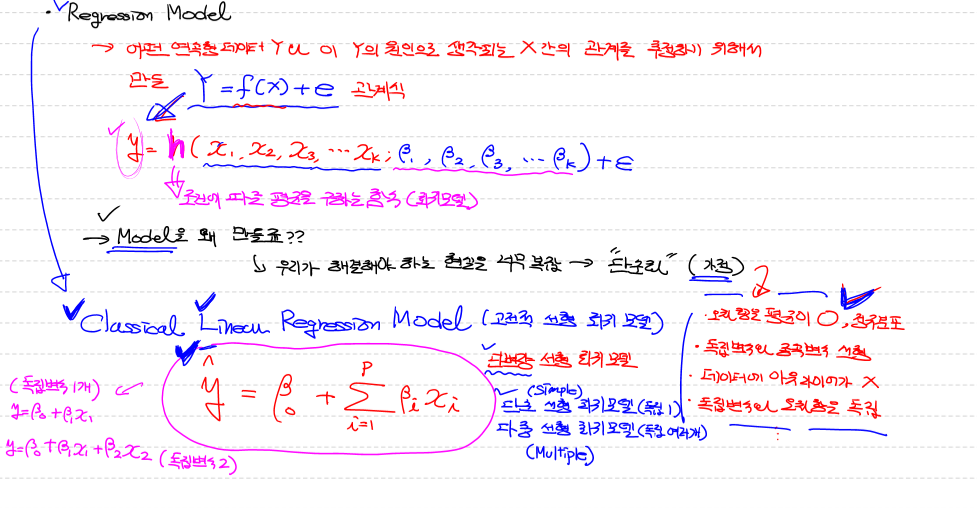 · Regression Model
→ 어떤 연속형 데이터 Y와 이 Y의 원인으로 생각되는 X간의 관계를 추정하기 위해서
만든 Y = f(x) + e 관계식
y = h( x₁, x₂, x₃, ⋯ xₖ ; β₁, β₂, β₃, ⋯ βₖ) + ε
조건에 따른 평균을 구하는 함수 (회귀모델)
→ Model을 왜 만들죠??
↳ 우리가 해결해야 하는 현실은 너무 복잡 → "단순화" (가정)
Classical Linear Regression Model (고전적 선형 회귀 모델)
ŷ = β₀ + Σᵢ₌₁ᵖ βᵢxᵢ
(독립변수 1개)
y=β₀+β₁x₁
y=β₀+β₁x₁+β₂x₂ (독립변수2)
선형 회귀모델
(Simple)
단순 선형 회귀모델 (독립 1)
다중 선형 회귀모델 (독립 여러개)
(Multiple)
· 오차항은 평균이 0, 정규분포
· 독립변수와 종속변수 선형
· 데이터에 아웃라이어가 X
· 독립변수와 오차항은 독립